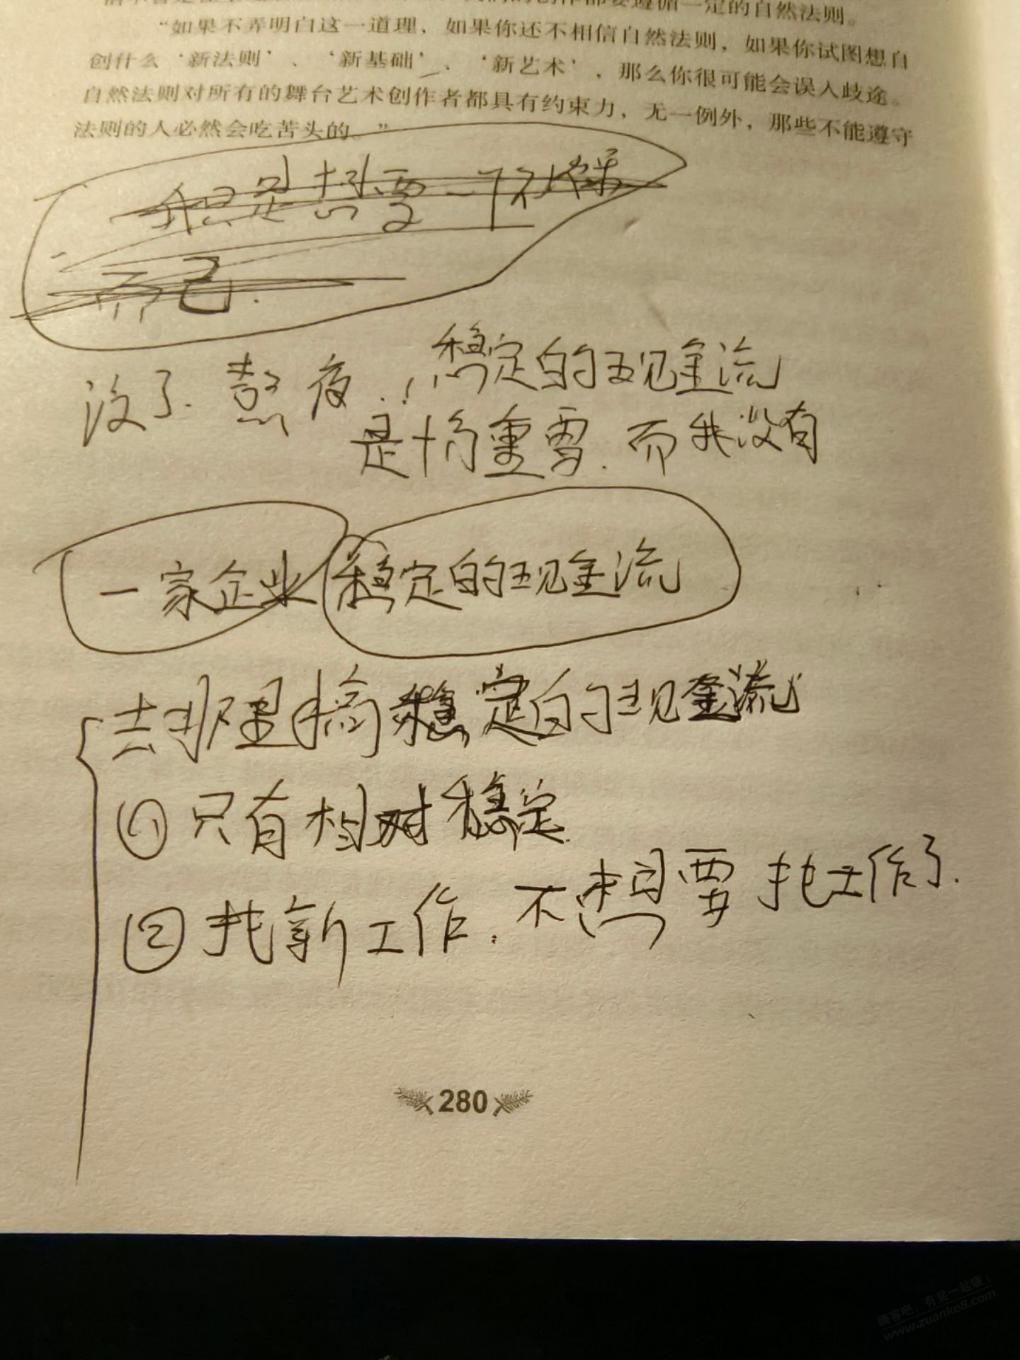 一定的自然法则。
“如果不弄明白这一道理，如果你还不相信自然法则，如果你试图想自
创什么‘新法则’、‘新基础’、‘新艺术’，那么你很可能会误入歧途。
自然法则对所有的舞台艺术创作者都具有约束力，无一例外，那些不能遵守
法则的人必然会吃苦头的。”
我只是想要一个
而已.
没了. 熬夜. 稳定的现金流
是十分重要. 而我没有
一家企业 稳定的现金流
去那里搞稳定的现金流
① 只有相对稳定.
② 找新工作. 不想要找工作了.
280
赚客吧，有奖一起赚！
www.zuanke8.com